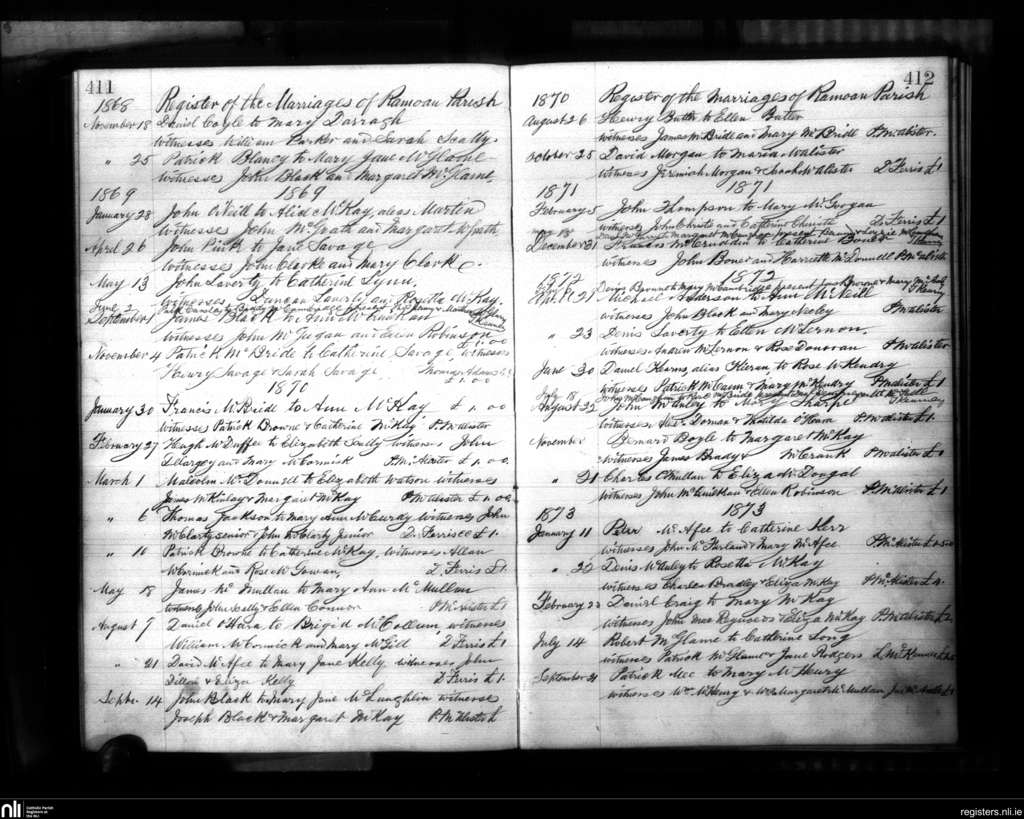 411
1868 Register of the Marriages of Ramoan Parish
November 18 Daniel Coyle to Mary Darragh
witnesses William Parker and Sarah Scally.
" 25 Patrick Blaney to Mary Jane McGlame
witnesses John Black and Margaret McGlame.
1869 1869
January 28 John O'Neill to Alice McKay, alias Marten
Witnesses John McGrath and Margaret McGrath
April 26 John Pink to Jane Savage
witnesses John Clarke and Mary Clarke.
May 13 John Laverty to Catherine Lynn.
witnesses Duncan Laverty and Rosetta McKay.
June 2
September 1 James Black to Ann
witnesses John McGugan and Ellen Robinson
£1.00
November 4 Patrick McBride to Catherine Savage, witnesses
Henry Savage & Sarah Savage Thomas Adams C.C.
£1.00
1870
January 30 Francis McBride to Ann McKay £1.00
witnesses Patrick Browne & Catherine McKay P. McAlister
February 27 Hugh McDuffee to Elizabeth Scally witnesses John
Dellargey and Mary McCormick P. McAlister £1.00.
March 1 Malcolm McDonnell to Elizabeth Watson witnesses
James McKinlay & Margaret McKay P. McAlister £1.00
" 6 Thomas Jackson to Mary Ann McCurdy witnesses John
McClarty senior & John McClarty junior D. Ferris CC £1.
" 10 Patrick Browne to Catherine McKay, witnesses Allan
McCormick and Rose McGowan, D. Ferris £1.
May 18 James McMullan to Mary Ann McMullan
witnesses John Kelly & Ellen Connor P. McAlister £1
August 7 Daniel O'Hara to Brigid McCollum witnesses
William McCormick and Mary McGill D Ferris £1
" 21 David McAfee to Mary Jane Kelly witnesses John
Dillon & Eliza Kelly D Ferris £1.
Septbr. 14 John Black to Mary Jane McLaughlin witnesses
Joseph Black & Margaret McKay P. McAlister £1
412
1870 Register of the Marriages of Ramoan Parish
August 26 Henry Butler to Ellen Butler
witnesses James McBride and Mary McBride P. McAlister.
October 25 David Morgan to Maria McAlister
witnesses Jeremiah Morgan & Sarah McAlister D Ferris £1
1871 1871
February 5 John Thompson to Mary McGrogan
witnesses John Christie and Catherine Christie D. Ferris £1
May 18
December 31 Francis McCruddin to Catherine Boner
witnesses John Boner and Harriette McDonnell P. McAlister
1872 1872
April 21 Michael Anderson to Ann McNeill
witnesses John Black and Mary Neeley P. McAlister
" 23 Denis Laverty to Ellen McLernon,
witnesses Andrew McLernon & Rose Donovan P McAlister
June 30 Daniel Kearns, alias Kieran, to Rose McKendry
witnesses Patrick McCann & Mary McKendry P. McAlister £1
July 18
August 22 John McKinley to Mary Sharpe
witnesses Alexr. Dornan & Matilda O'Hara P. McAlister £1.
November Bernard Boyle to Margaret McKay
witnesses James Brady & McCrank P. McAlister £1
" 21 Charles McMullan to Eliza McDougal
witnesses John McQuickan & Ellen Robinson P. McAlister £1
1873 1873
January 11 Peter McAfee to Catherine Kerr
witnesses John McFarland & Mary McAfee P. McAlister £1.5.0
" 22 Denis McAuley to Rosetta McKay
witnesses Charles Bradley & Eliza McKay P. McAlister £1.
February 23 Daniel Craig to Mary McKay
witnesses John & Eliza McKay P. McAlister £2
July 14 Robert McGlame to Catherine Long
witnesses Patrick McGlame & Jane Rodgers
September 21 Patrick to Mary McHenry
witnesses Wm McHenry & Margaret McMullan
nli Catholic Parish Registers at the NLI
registers.nli.ie